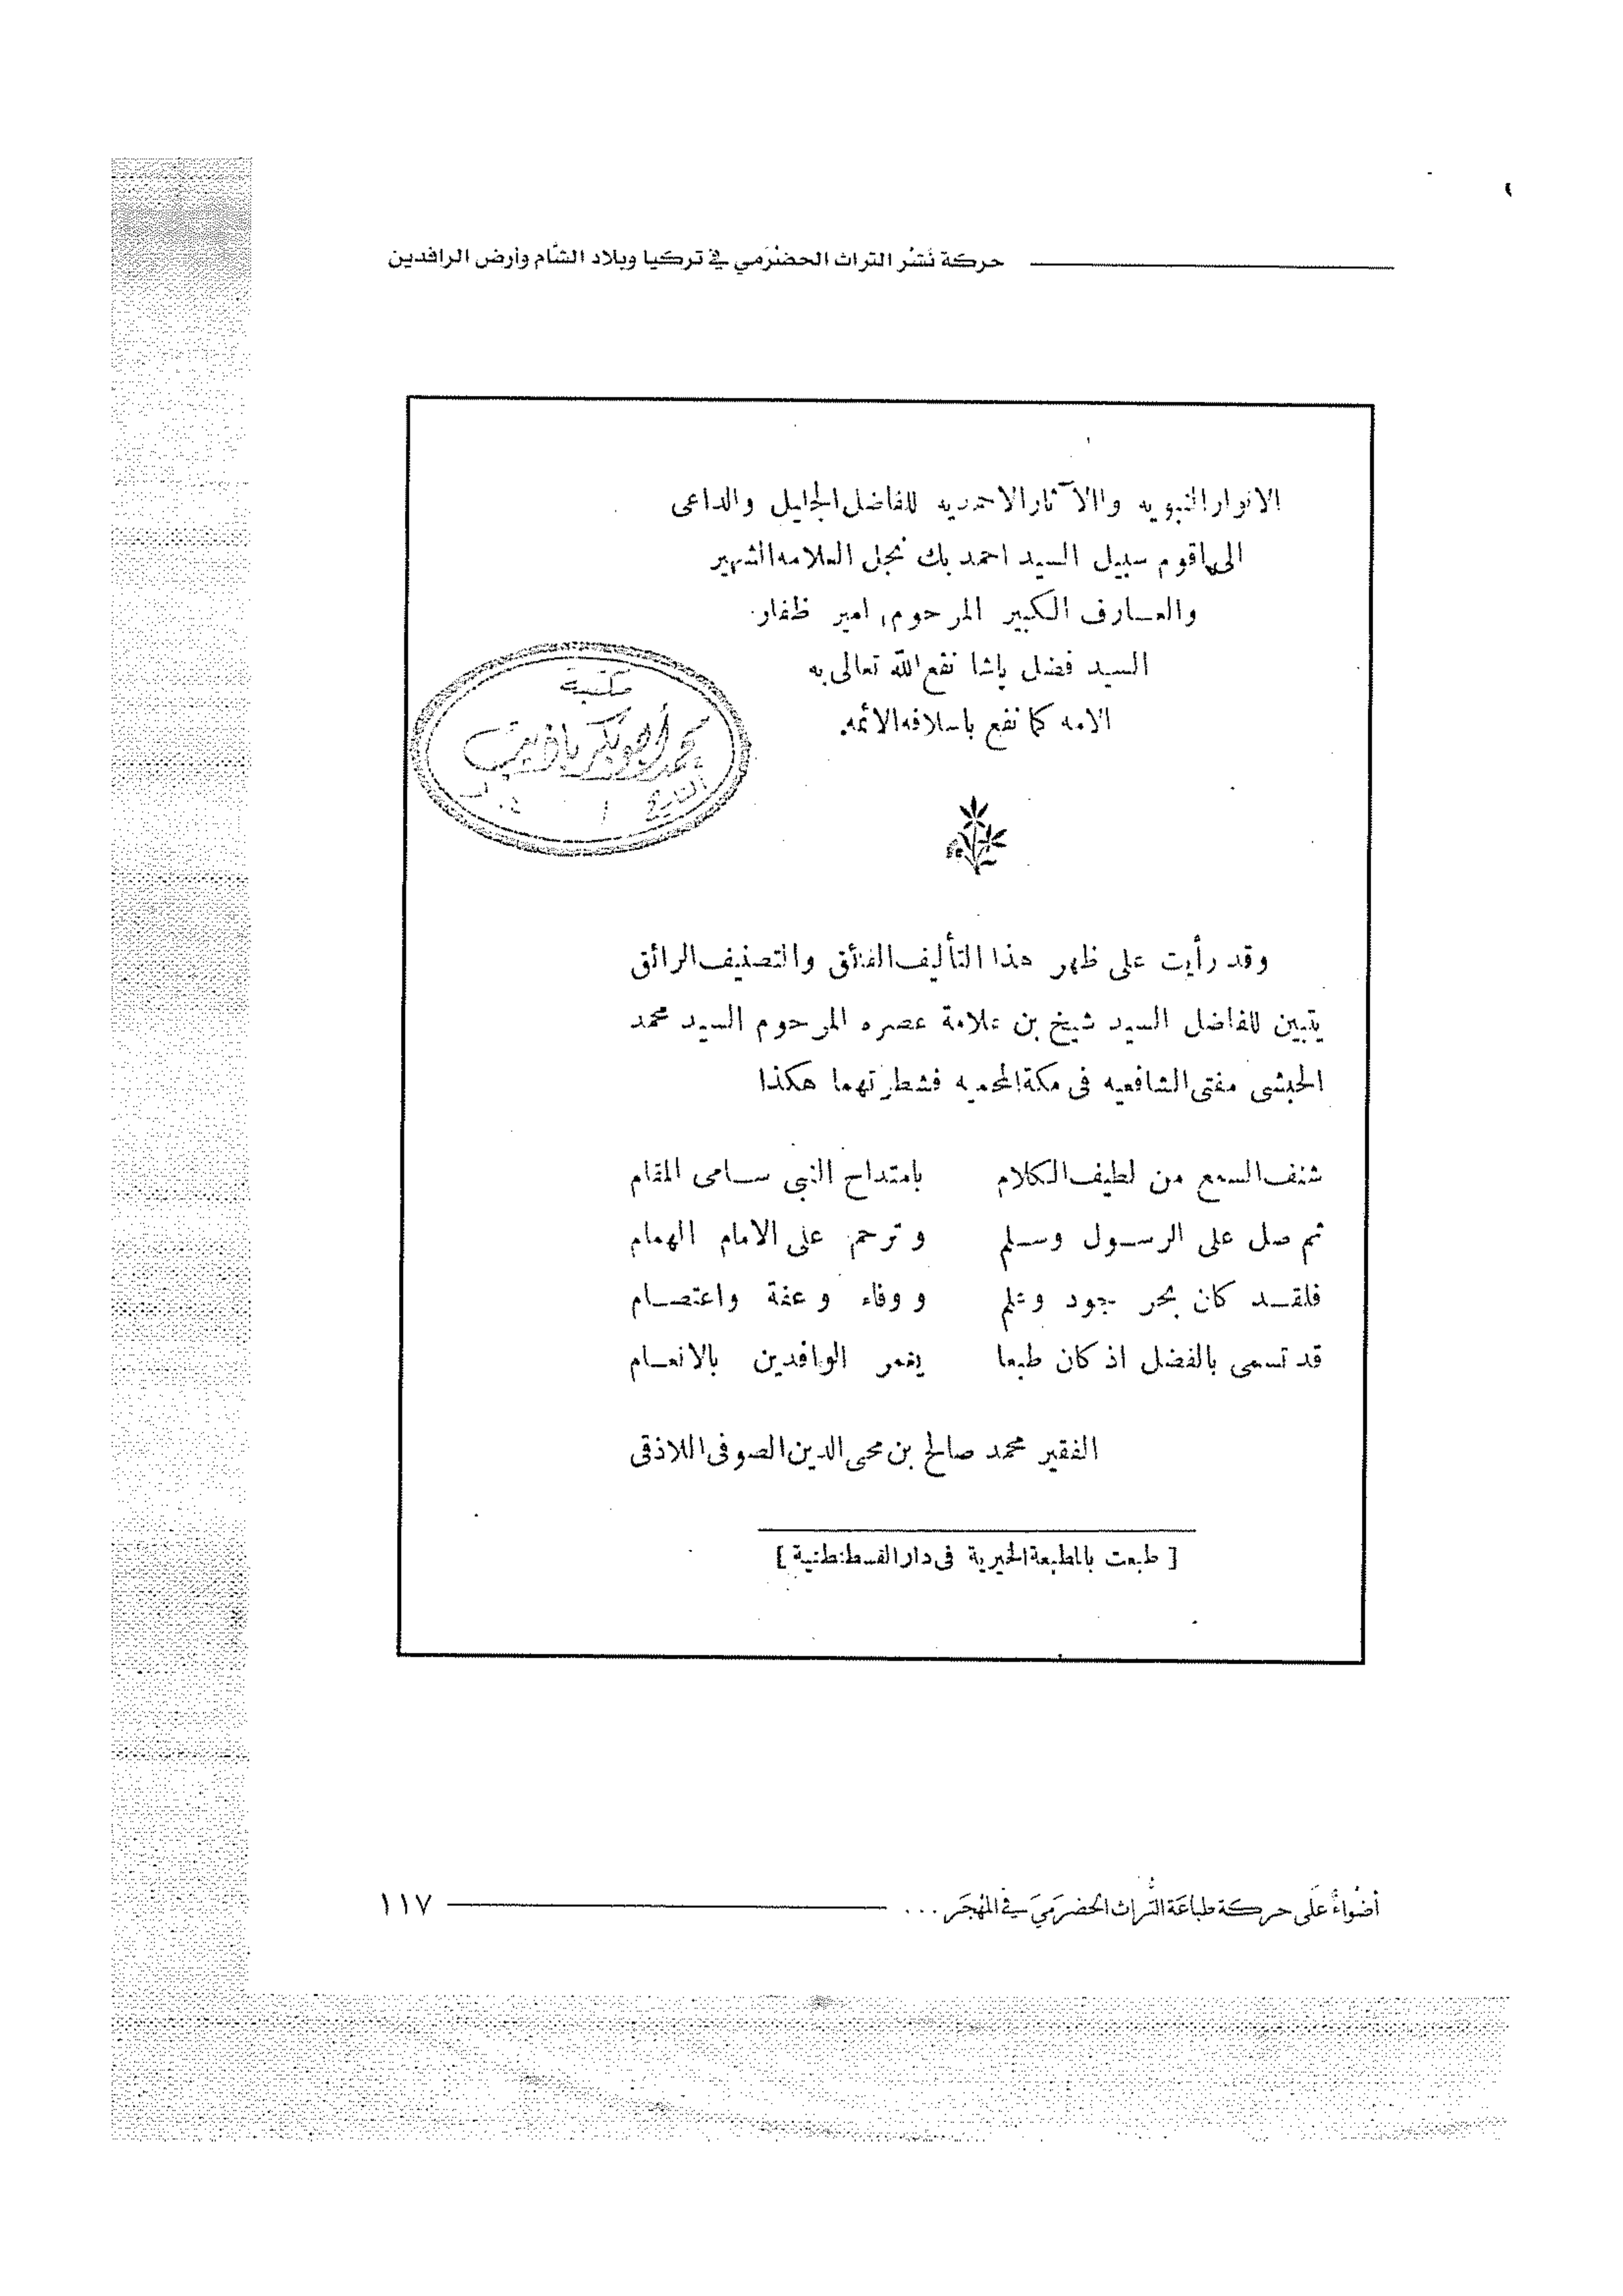 حركة نَشْر التراث الحضْرَمي في تركيا وبلاد الشّام وأرض الرافدين
الانوار النبويه والآثار الاحمديه للفاضل الجليل والداعى
الى اقوم سبيل السيد احمد بك نجل العلامه الشهير
والعــارف الكبير المرحوم امير ظفار
السيد فضل پاشا نفع الله تعالى به
الامه كما نفع باسلافه الائمه.
مكتبة
محمد أبوبكر باذيب
وقد رأيت على ظهر هذا التأليف الفائق والتصنيف الرائق
يتبين للفاضل السيد شيخ بن علامة عصره المرحوم السيد محمد
الحبشى مفتى الشافعيه فى مكة المحميه فشطرتهما هكذا
شنف السمع من لطيف الكلام بامتداح النبى ســامى المقام
ثم صل على الرســول وســلم وترحم على الامام الهمام
فلقــد كان بحر جود وعلم ووفاء وعفة واعتصــام
قد تسمى بالفضل اذ كان طبعا يغمر الوافدين بالانعــام
الفقير محمد صالح بن محى الدين الصوفى اللاذقى
[ طبعت بالمطبعة الخيرية فى دار القسطنطنية ]
أضْواءٌ عَلَى حركة طباعَة التُّراث الحضرَميّ في المهْجَر ... ١١٧